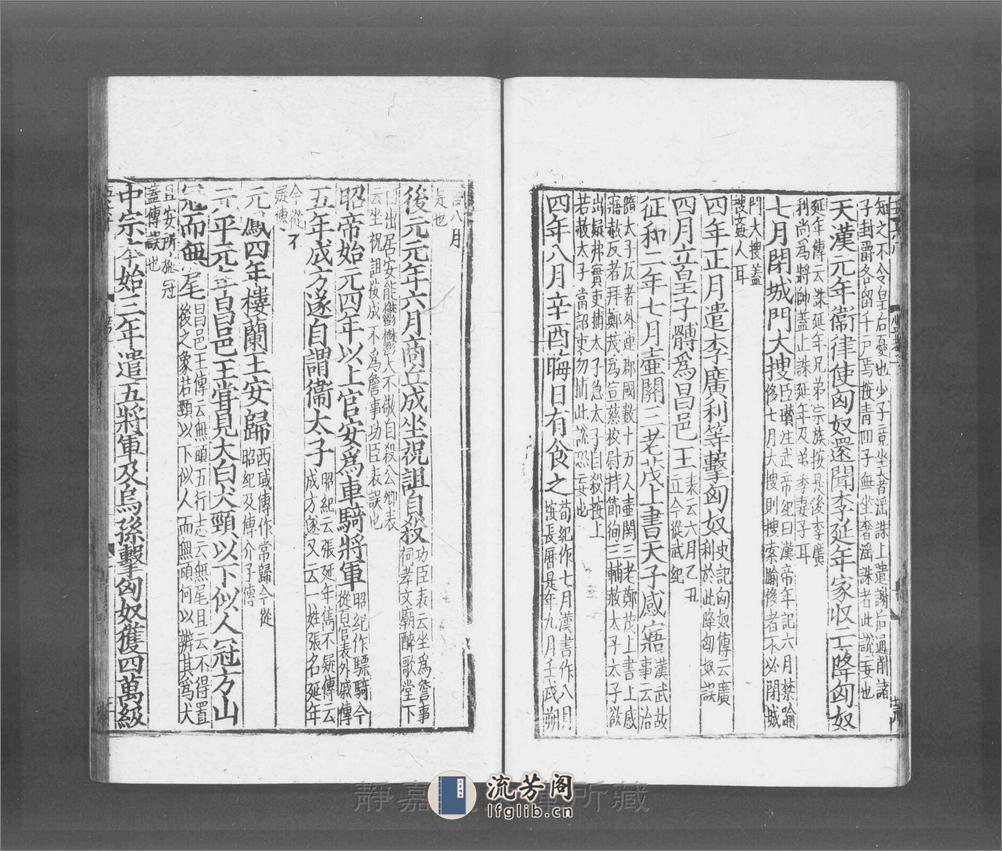 知之不令皇后憂也少子竟坐主者滛誅上遣謝后過削諸
子封爵各留千戸焉按青四子無坐奢滛誅者此說妄也
天漢元年衞律使匈奴還聞李延年家收亡降匈奴
延年傳云誅延年兄弟宗族按是後李廣
利尚為將帥蓋止誅延年及弟季妻子耳
七月閉城門大搜臣瓚注武帝紀曰漢帝年記六月禁踰
侈七月大搜則搜索踰侈者不必閉城
門大搜蓋
搜姦人耳
四年正月遣李廣利等擊匈奴史記匈奴傳云廣
利於此降匈奴誤
四月立皇子髆為昌邑王表云六月乙丑
立今從武紀
征和二年七月壷關三老茂上書天子感寤漢武故
事云治
隨太子反者外連郡國數十万人壷關三老鄭茂上書上感
寤赦反者拜鄭茂為宣慈校尉持節徇三輔赦太子太子欲
出疑弗實吏捕太子急太子自殺按上
若赦太子當詔吏勿捕此說恐妄也
四年八月辛酉晦日有食之荀紀作七月漢書作八月
按長曆是年九月壬戌朔
言八月
是也
後元元年六月商丘成坐祝詛自殺功臣表云坐為詹事
祠孝文廟醉歌堂下
曰出居安能鬱鬱大不敬自殺公卿表
云坐祝詛按成不為詹事功臣表誤也
昭帝始元四年以上官安為車騎將軍昭紀作驃騎今
從百官表外戚傳
五年成方遂自謂衞太子昭紀云張延年雋不疑傳云
成方遂又云一姓張名延年
今從
疑傳
元鳳四年樓蘭王安歸西域傳作常歸今從
昭紀及傅介子傳
元平元年昌邑王嘗見大白犬頸以下似人冠方山
冠而無尾昌邑王傳云無頭五行志云無尾且云不得置
後之象若頸以下似人而無頭何以辨其為犬
且安所施冠
蓋傳誤也
中宗本始三年遣五將軍及烏孫擊匈奴獲四萬級
流芳阁
lfglib.cn
静嘉 所藏